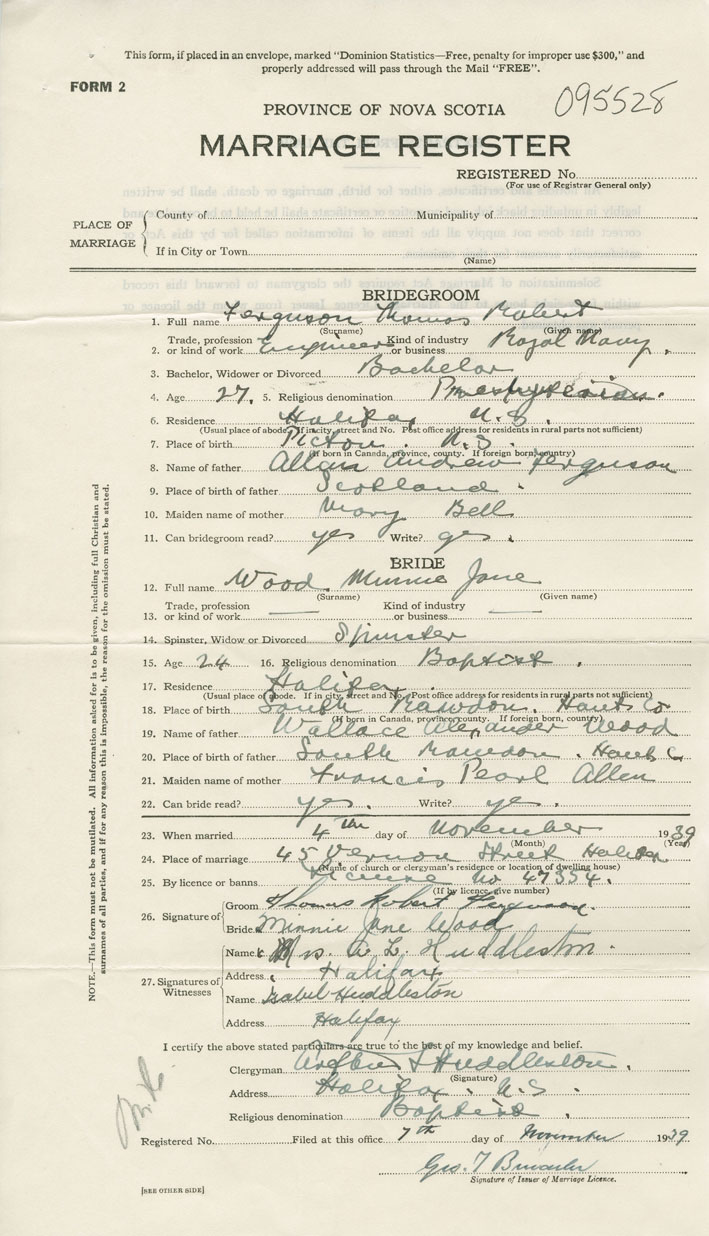 This form, if placed in an envelope, marked "Dominion Statistics—Free, penalty for improper use $300," and
properly addressed will pass through the Mail "FREE".
FORM 2
095528
PROVINCE OF NOVA SCOTIA
MARRIAGE REGISTER
REGISTERED No.
(For use of Registrar General only)
PLACE OF MARRIAGE
County of Municipality of
If in City or Town
(Name)
BRIDEGROOM
1. Full name Ferguson Thomas Robert
(Surname) (Given name)
2. Trade, profession or kind of work Engineer Kind of industry or business Royal Navy.
3. Bachelor, Widower or Divorced Bachelor
4. Age 27. 5. Religious denomination Presbyterian.
6. Residence Halifax N.S.
(Usual place of abode. If in city, street and No. Post office address for residents in rural parts not sufficient)
7. Place of birth Picton. N.S.
(If born in Canada, province, county. If foreign born, country)
8. Name of father Allan Andrew Ferguson
9. Place of birth of father Scotland.
10. Maiden name of mother Mary Bell
11. Can bridegroom read? yes Write? yes.
BRIDE
12. Full name Wood. Minnie Jane
(Surname) (Given name)
13. Trade, profession or kind of work — Kind of industry or business —
14. Spinster, Widow or Divorced Spinster
15. Age 24 16. Religious denomination Baptist.
17. Residence Halifax.
(Usual place of abode. If in city, street and No. Post office address for residents in rural parts not sufficient)
18. Place of birth South Rawdon. Hants Co
(If born in Canada, province, county. If foreign born, country)
19. Name of father Wallace Alexander Wood
20. Place of birth of father South Rawdon. Hants Co
21. Maiden name of mother Francis Pearl Allen
22. Can bride read? yes. Write? yes.
23. When married 4th day of November 1939
(Month) (Year)
24. Place of marriage 45 Vernon Street Halifax
(Name of church or clergyman's residence or location of dwelling house)
25. By licence or banns License No 47354.
(If by licence, give number)
26. Signature of
Groom Thomas Robert Ferguson.
Bride Minnie Jane Wood
27. Signatures of Witnesses
Name Mrs. A. L. Huddleston.
Address Halifax
Name Isabel Huddleston
Address Halifax
I certify the above stated particulars are true to the best of my knowledge and belief.
Clergyman Huddleston.
(Signature)
Address Halifax. N.S.
Religious denomination Baptist.
Registered No. Filed at this office 7th day of November 1939
Geo. T
Signature of Issuer of Marriage Licence.
[SEE OTHER SIDE]
NOTE.—This form must not be mutilated. All information asked for is to be given, including full Christian and
surnames of all parties, and if for any reason this is impossible, the reason for the omission must be stated.